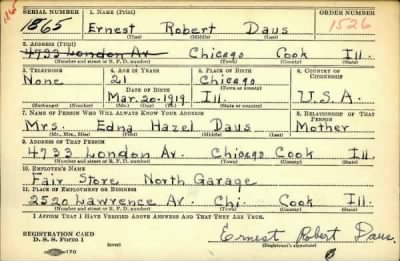 SERIAL NUMBER 1. NAME (Print) ORDER NUMBER
1865 Ernest Robert Daus 1526
(First) (Middle) (Last)
2. ADDRESS (Print)
4733 London Av Chicago Cook Ill.
(Number and street or R. F. D. number) (Town) (County) (State)
3. TELEPHONE 4. AGE IN YEARS 5. PLACE OF BIRTH 6. COUNTRY OF CITIZENSHIP
None 21 Chicago
(Town or county)
DATE OF BIRTH
Mar. 20-1919 Ill. U.S.A.
(Exchange) (Number) (Mo.) (Day) (Yr.) (State or country)
7. NAME OF PERSON WHO WILL ALWAYS KNOW YOUR ADDRESS 8. RELATIONSHIP OF THAT PERSON
Mrs. Edna Hazel Daus Mother
(Mr., Mrs., Miss) (First) (Middle) (Last)
9. ADDRESS OF THAT PERSON
4733 London Av. Chicago Cook Ill.
(Number and street or R. F. D. number) (Town) (County) (State)
10. EMPLOYER'S NAME
Fair Store North Garage
11. PLACE OF EMPLOYMENT OR BUSINESS
2520 Lawrence Av. Chi. Cook Ill.
(Number and street or R. F. D. number) (Town) (County) (State)
I AFFIRM THAT I HAVE VERIFIED ABOVE ANSWERS AND THAT THEY ARE TRUE.
REGISTRATION CARD
D. S. S. Form 1 Ernest Robert Daus.
(Registrant's signature)